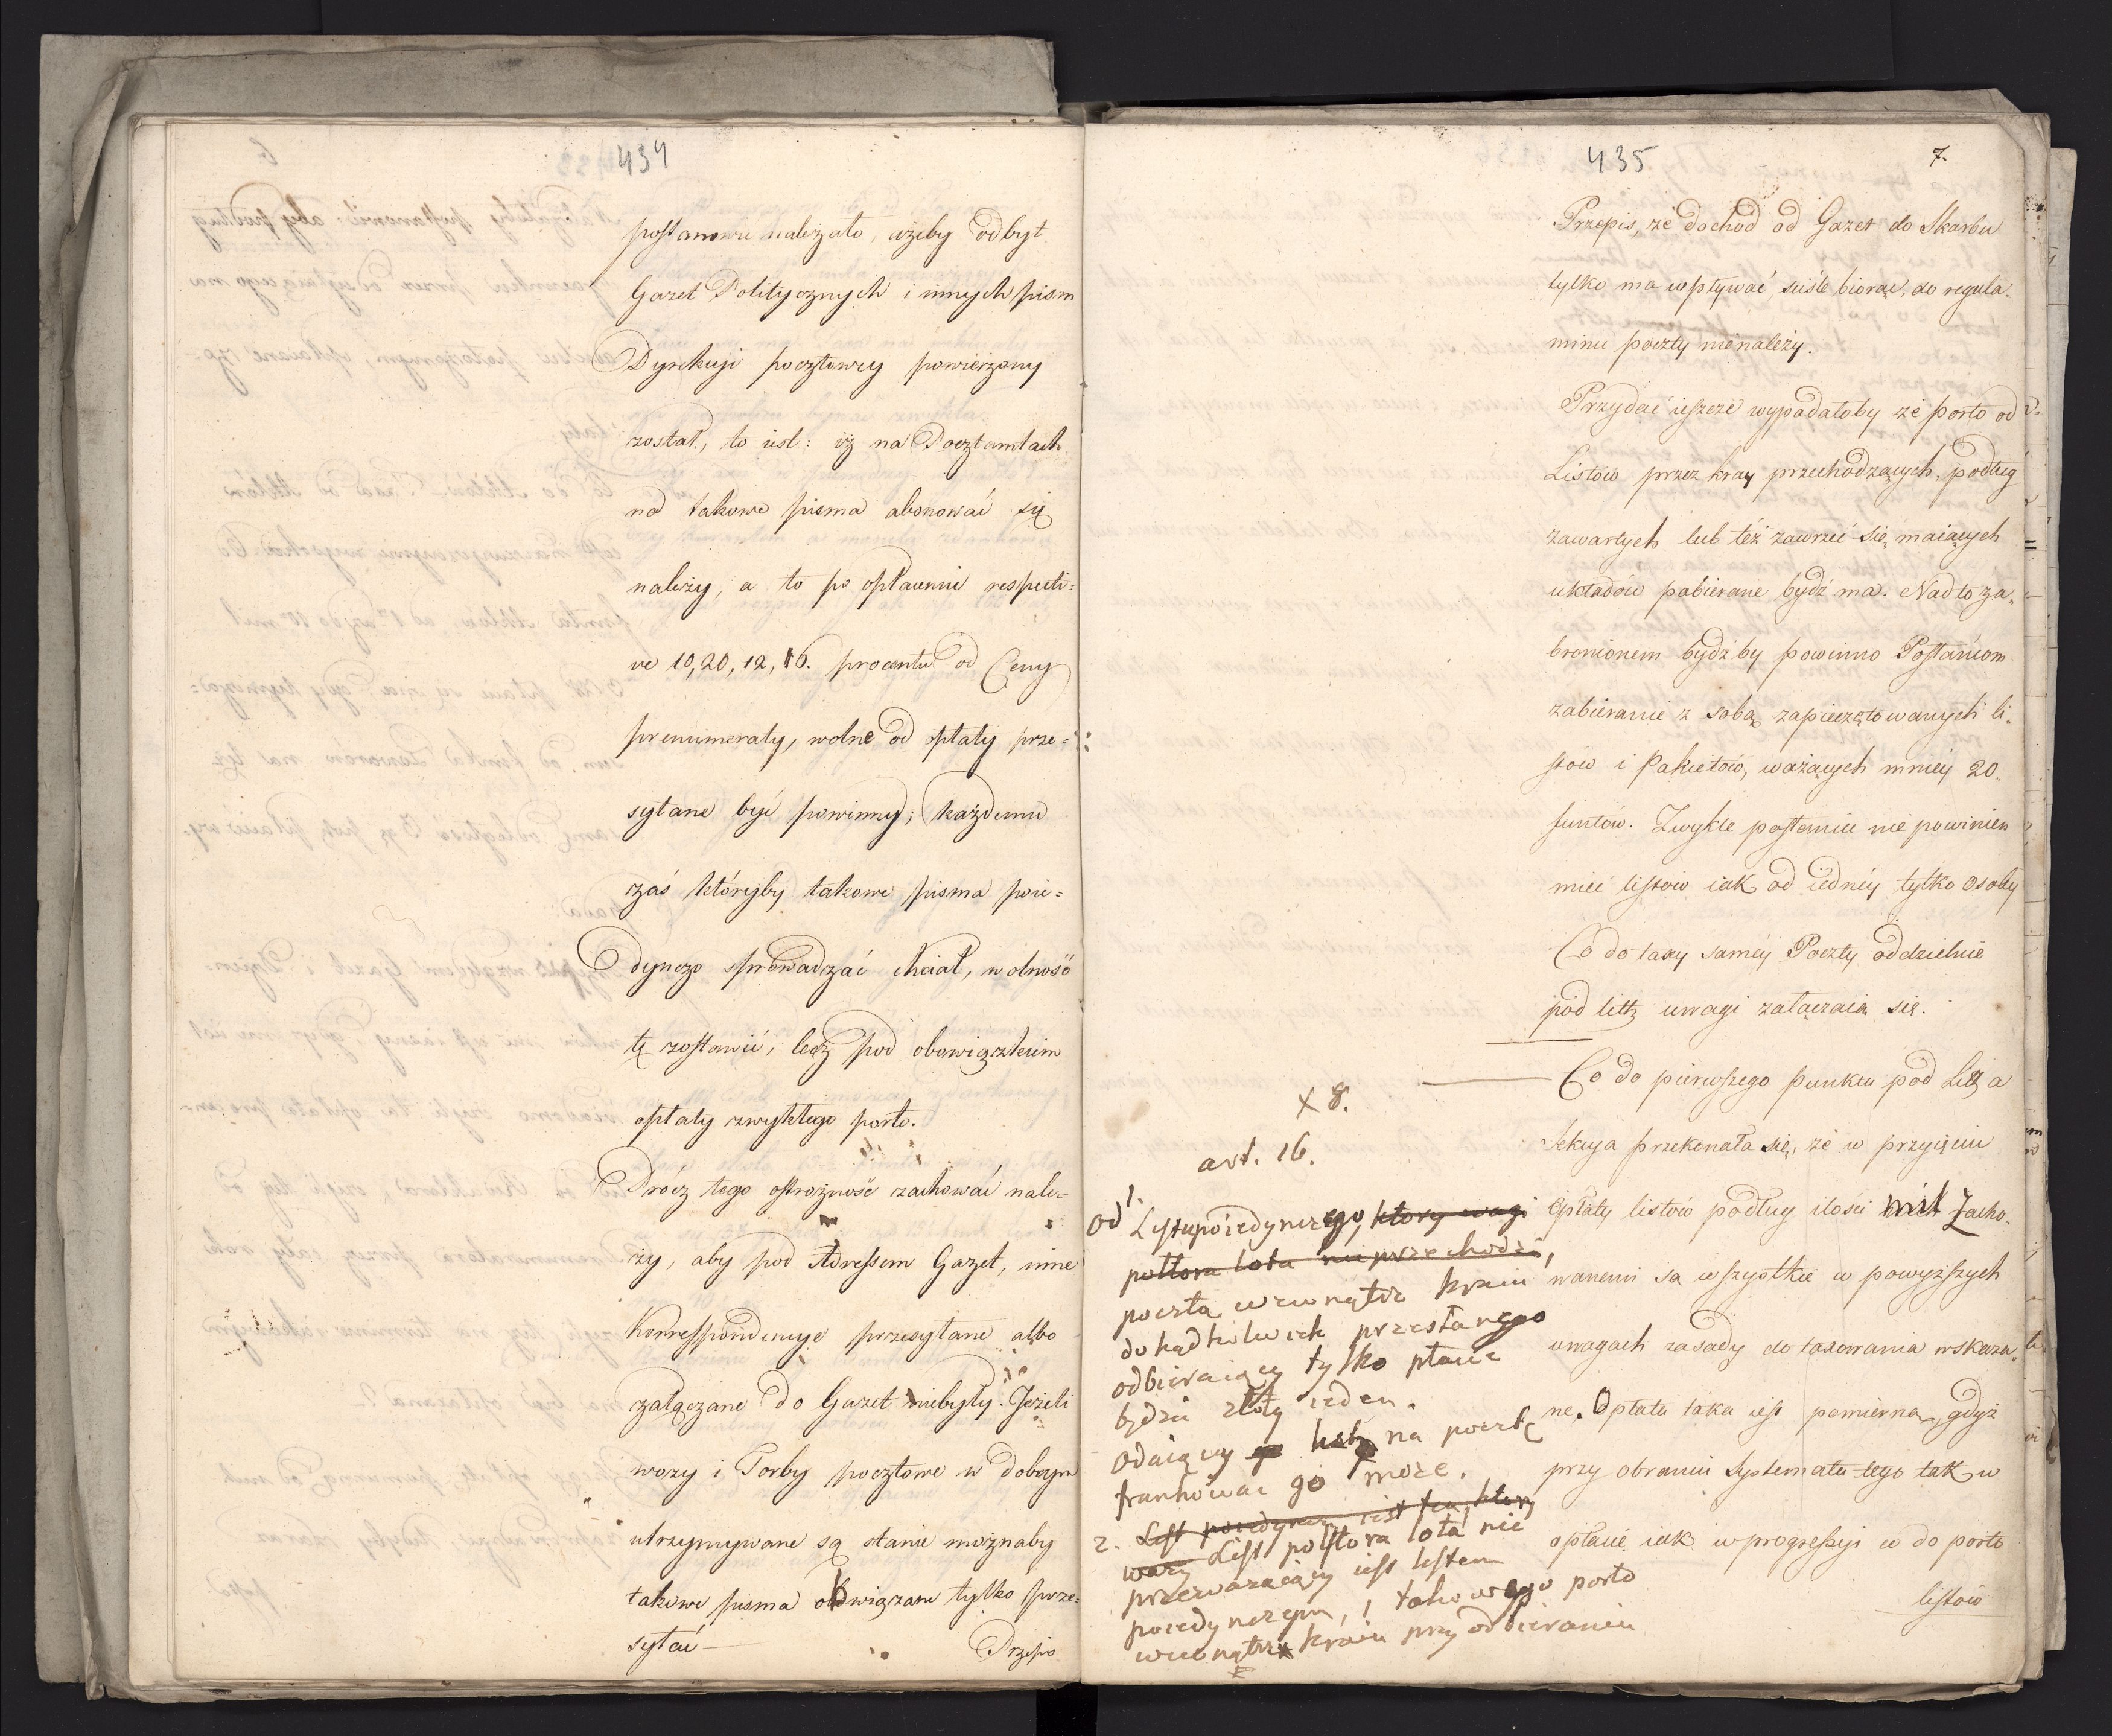 434
postanowić należało, ażeby odbyt
Gazet Politycznych i innych pism
Dyrekcyi pocztowey powierzony
został, to iest: iż na Pocztamtach
na takowe pisma abonować się
należy, a to po opłaceniu respecti=
ve 10, 20, 12, 16. procentu od Ceny
prenumeraty, wolne od opłaty prze=
syłane być powinny; każdemu
zaś któryby takowe pisma poie=
dynczo sprowadzać chciał, wolność
tę zostawić, lecz pod obowiązkiem
opłaty zwykłego porto.
Prócz tego ostrożność zachować nale-
ży, aby pod Adressem Gazet, inne
Korrespondencye przesyłane albo
załączane do Gazet niebyły. Jeżeli
wozy i Torby pocztowe w dobrym
utrzymywane są stanie możnaby
takowe pisma obwiązane tylko prze=
syłać —
Przepis
435
7.
Przepis, że dochód od Gazet do Skarbu
tylko ma wpływać, ściśle biorąc, do regula-
minu poczty nienależy.
Przydać ieszcze wypadałoby że porto od
Listów przez kray przechodzących, podług
zawartych lub też zawrzeć się maiących
układów pobierane bydź ma. Nadto za-
bronionem bydź by powinno Posłańcom
zabieranie z sobą zapieczętowanych li-
stów i Pakietów, ważących mniey 20.
funtów. Zwykle posłaniec nie powinien
mieć listów iak od iedney tylko osoby
Co do taxy samey Poczty oddzielnie
pod litt uwagi załączaią się.
Co do pierwszego punktu pod Litt a
Sekcya przekonała się, że w przyięciu
opłaty listów podług ilości mil Zacho-
wanemi są wszystkie w powyższych
uwagach zasady do taxowania wskaza-
ne. Opłata taka iest pomierna, gdyż
przy obraniu Systematu tego tak w
opłacie iak w progressyi co do porto
listów
x 8.
art. 16.
1.
Od Listu poiedynczego, ktory wagi
połtora łota nie przechodzi,
poczta wewnątrz kraiu
dokądkolwiek przesłanego
odbieraiący tylko płacić
będzie złoty ieden.
Odaiący list na pocztę
frankować go może.
2. List poiedynczy iest ten, ktory
wazy List połtora łota nie
przeważaiący iest listem
poiedynczym, i takowego porto
wewnątrz kraiu przy odbieraniu